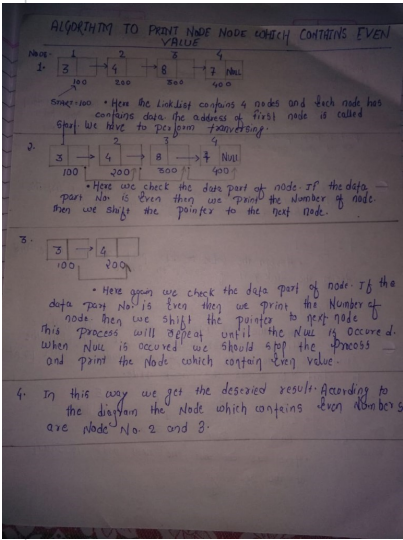 ALGORITHM TO PRINT NODE NODE WHICH CONTAINS EVEN
VALUE
Node- 1 2 3 4
1. 3 → 4 → 8 → 7 NULL
100 200 300 400
Start=100 • Here the linklist contains 4 nodes and Each node has
contains data. the address of first node is called
Start. We have to perform tranversing.
2. 3 → 4 → 8 → 7 NULL
100 200 300 400
• Here we check the data part of node. If the data
part No. is Even then we print the Number of node.
then we shift the pointer to the next node.
3. 3 → 4
100 200
• Here again we check the data part of node. If the
data part No. is Even then we print the Number of
node. then we shift the pointer to next node
This process will repeat until the NULL is Occured.
when NULL is occured we should stop the process
and print the Node which contain Even value.
4. In this way we get the desried result. According to
the diagram the Node which contains Even Numbers
are Node No. 2 and 3.